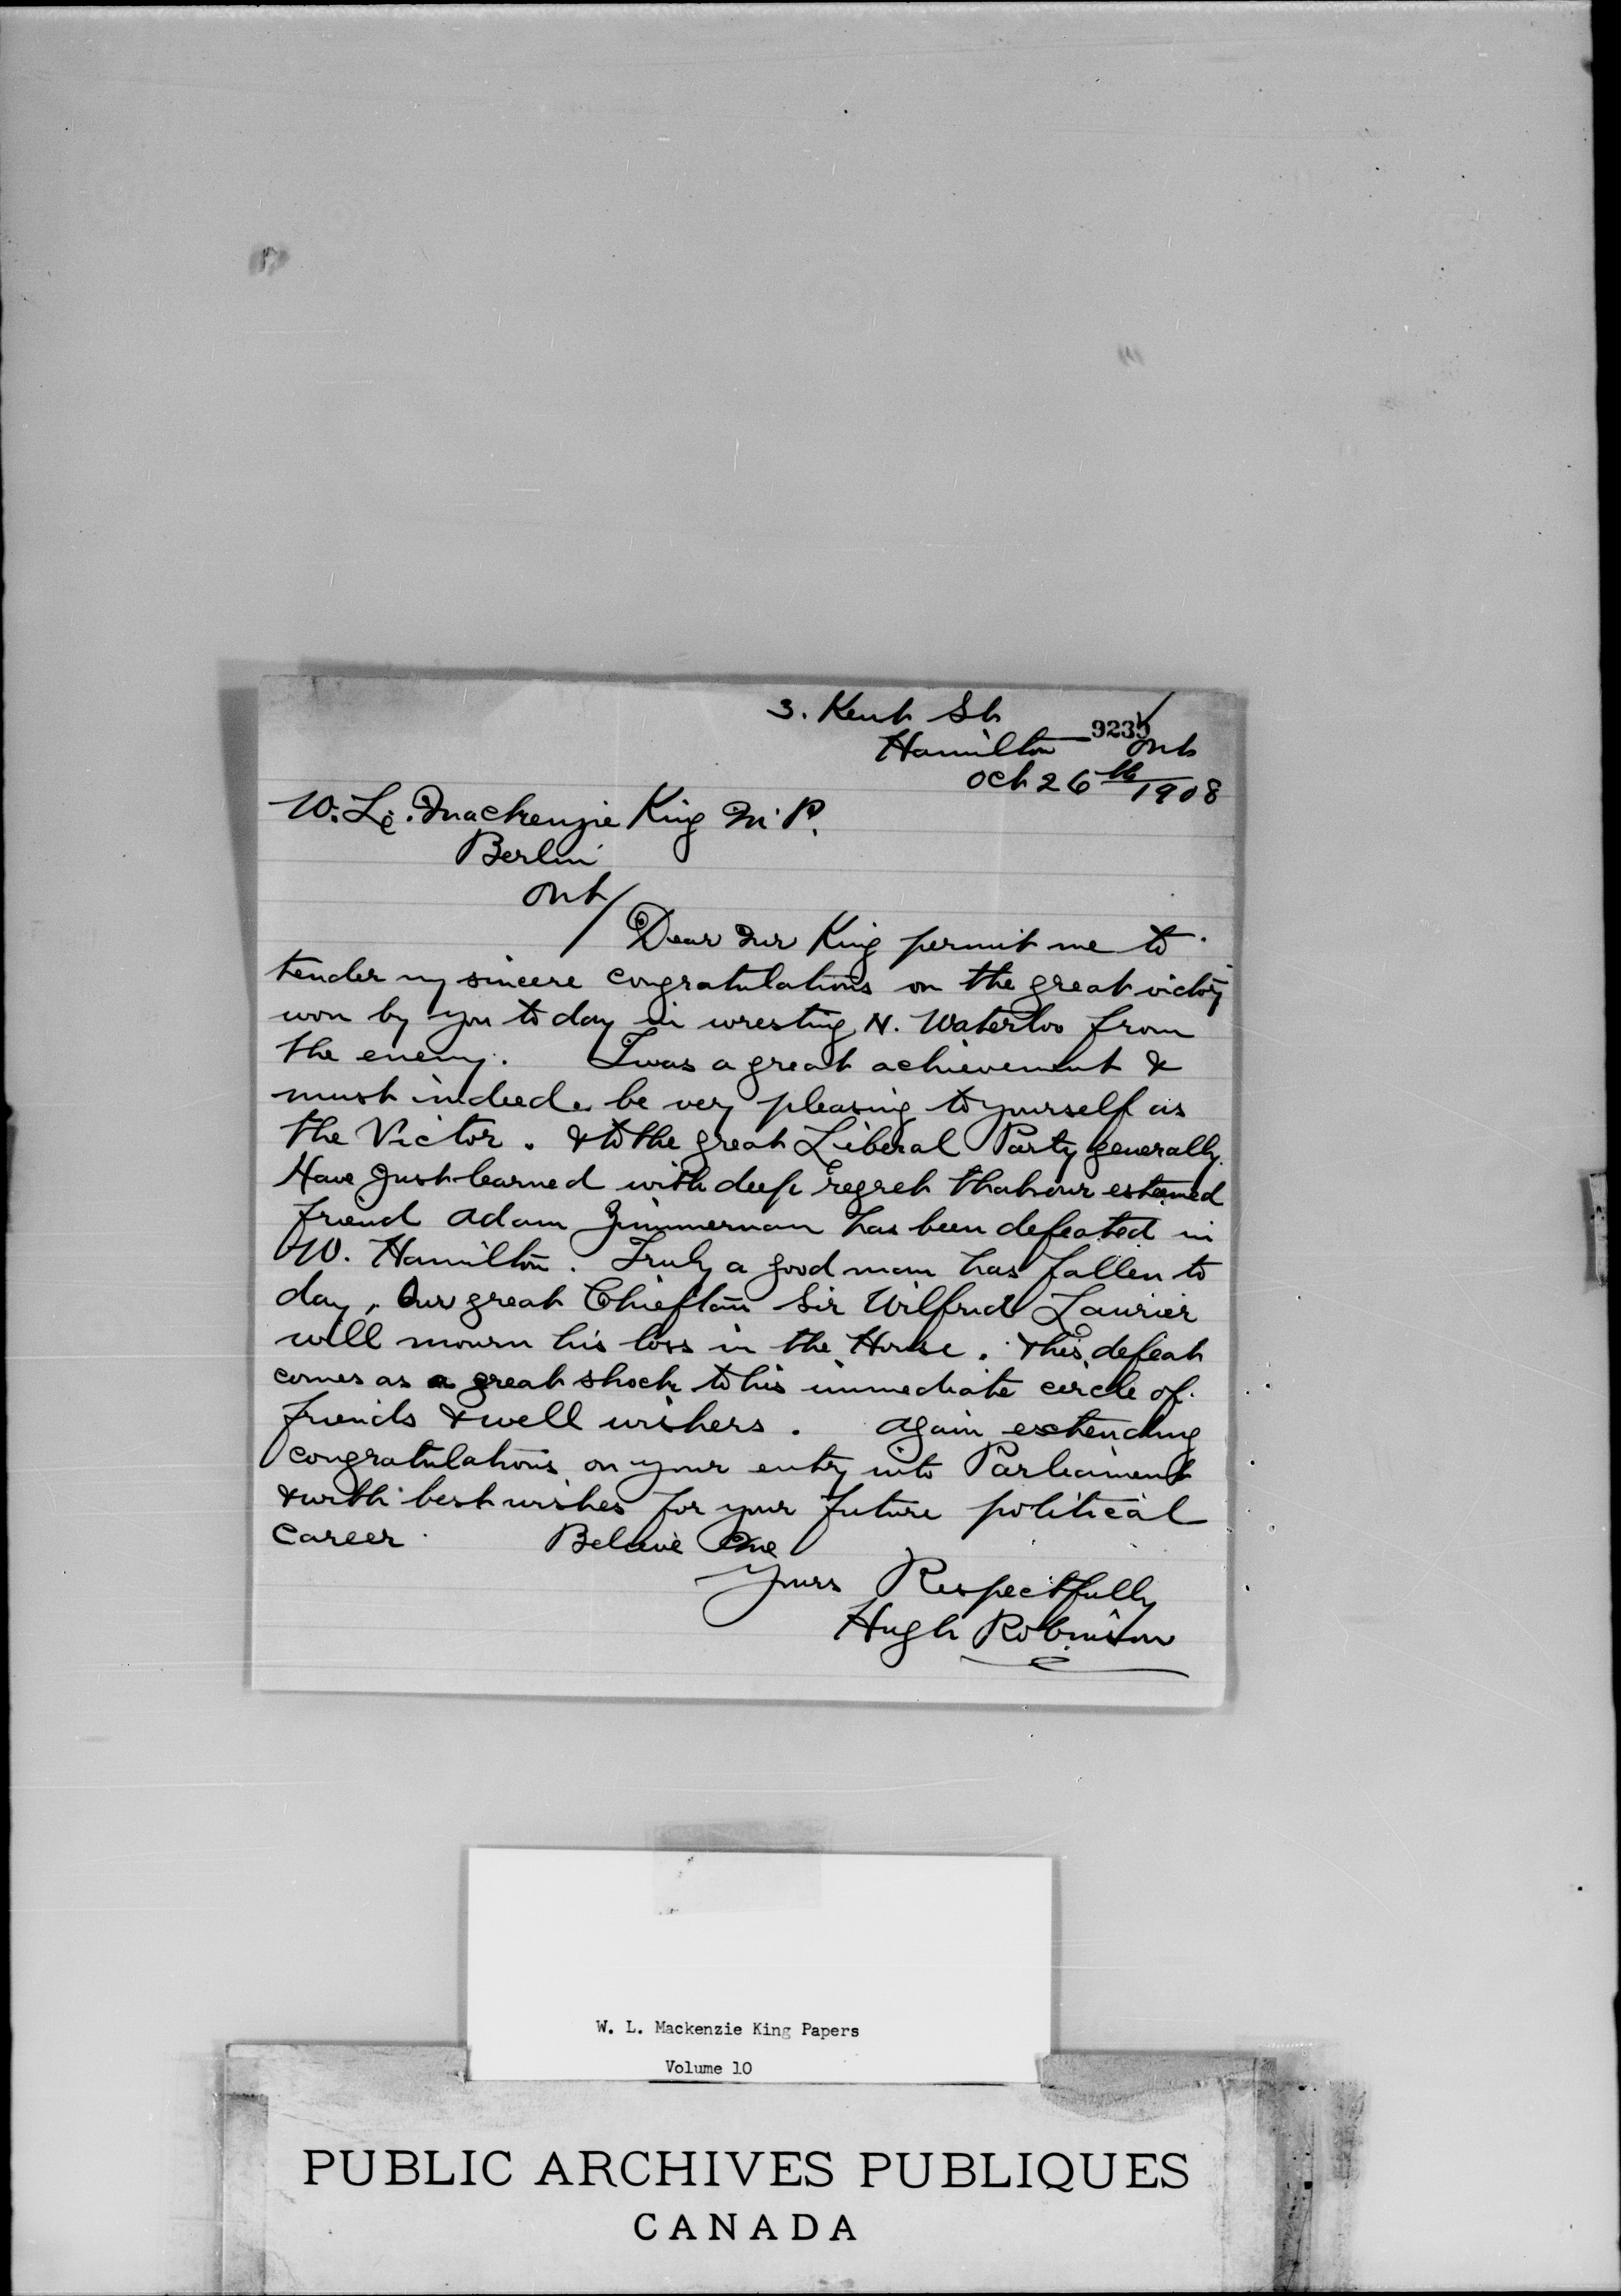 3. Kent St
9235
Hamilton Ont
Oct 26th 1908
W. L. Mackenzie King M.P.
Berlin
Ont/
Dear Mr King permit me to
tender my sincere congratulations on the great victory
won by you to day in wresting N. Waterloo from
the enemy. Twas a great achievement &
must indeed be very pleasing to yourself as
the Victor. & to the great Liberal Party generally.
Have just learned with deep regret that our esteemed
friend Adam Zimmerman has been defeated in
W. Hamilton. Truly a good man has fallen to
day, Our great Chieftain Sir Wilfrid Laurier
will mourn his loss in the House. & his defeat
comes as a great shock to his immediate circle of
friends & well wishers. Again extending
congratulations on your entry into Parliament
& with best wishes for your future political
career. Believe Me
Yours Respectfully
Hugh Robinson
W. L. Mackenzie King Papers
Volume 10
PUBLIC ARCHIVES PUBLIQUES
CANADA